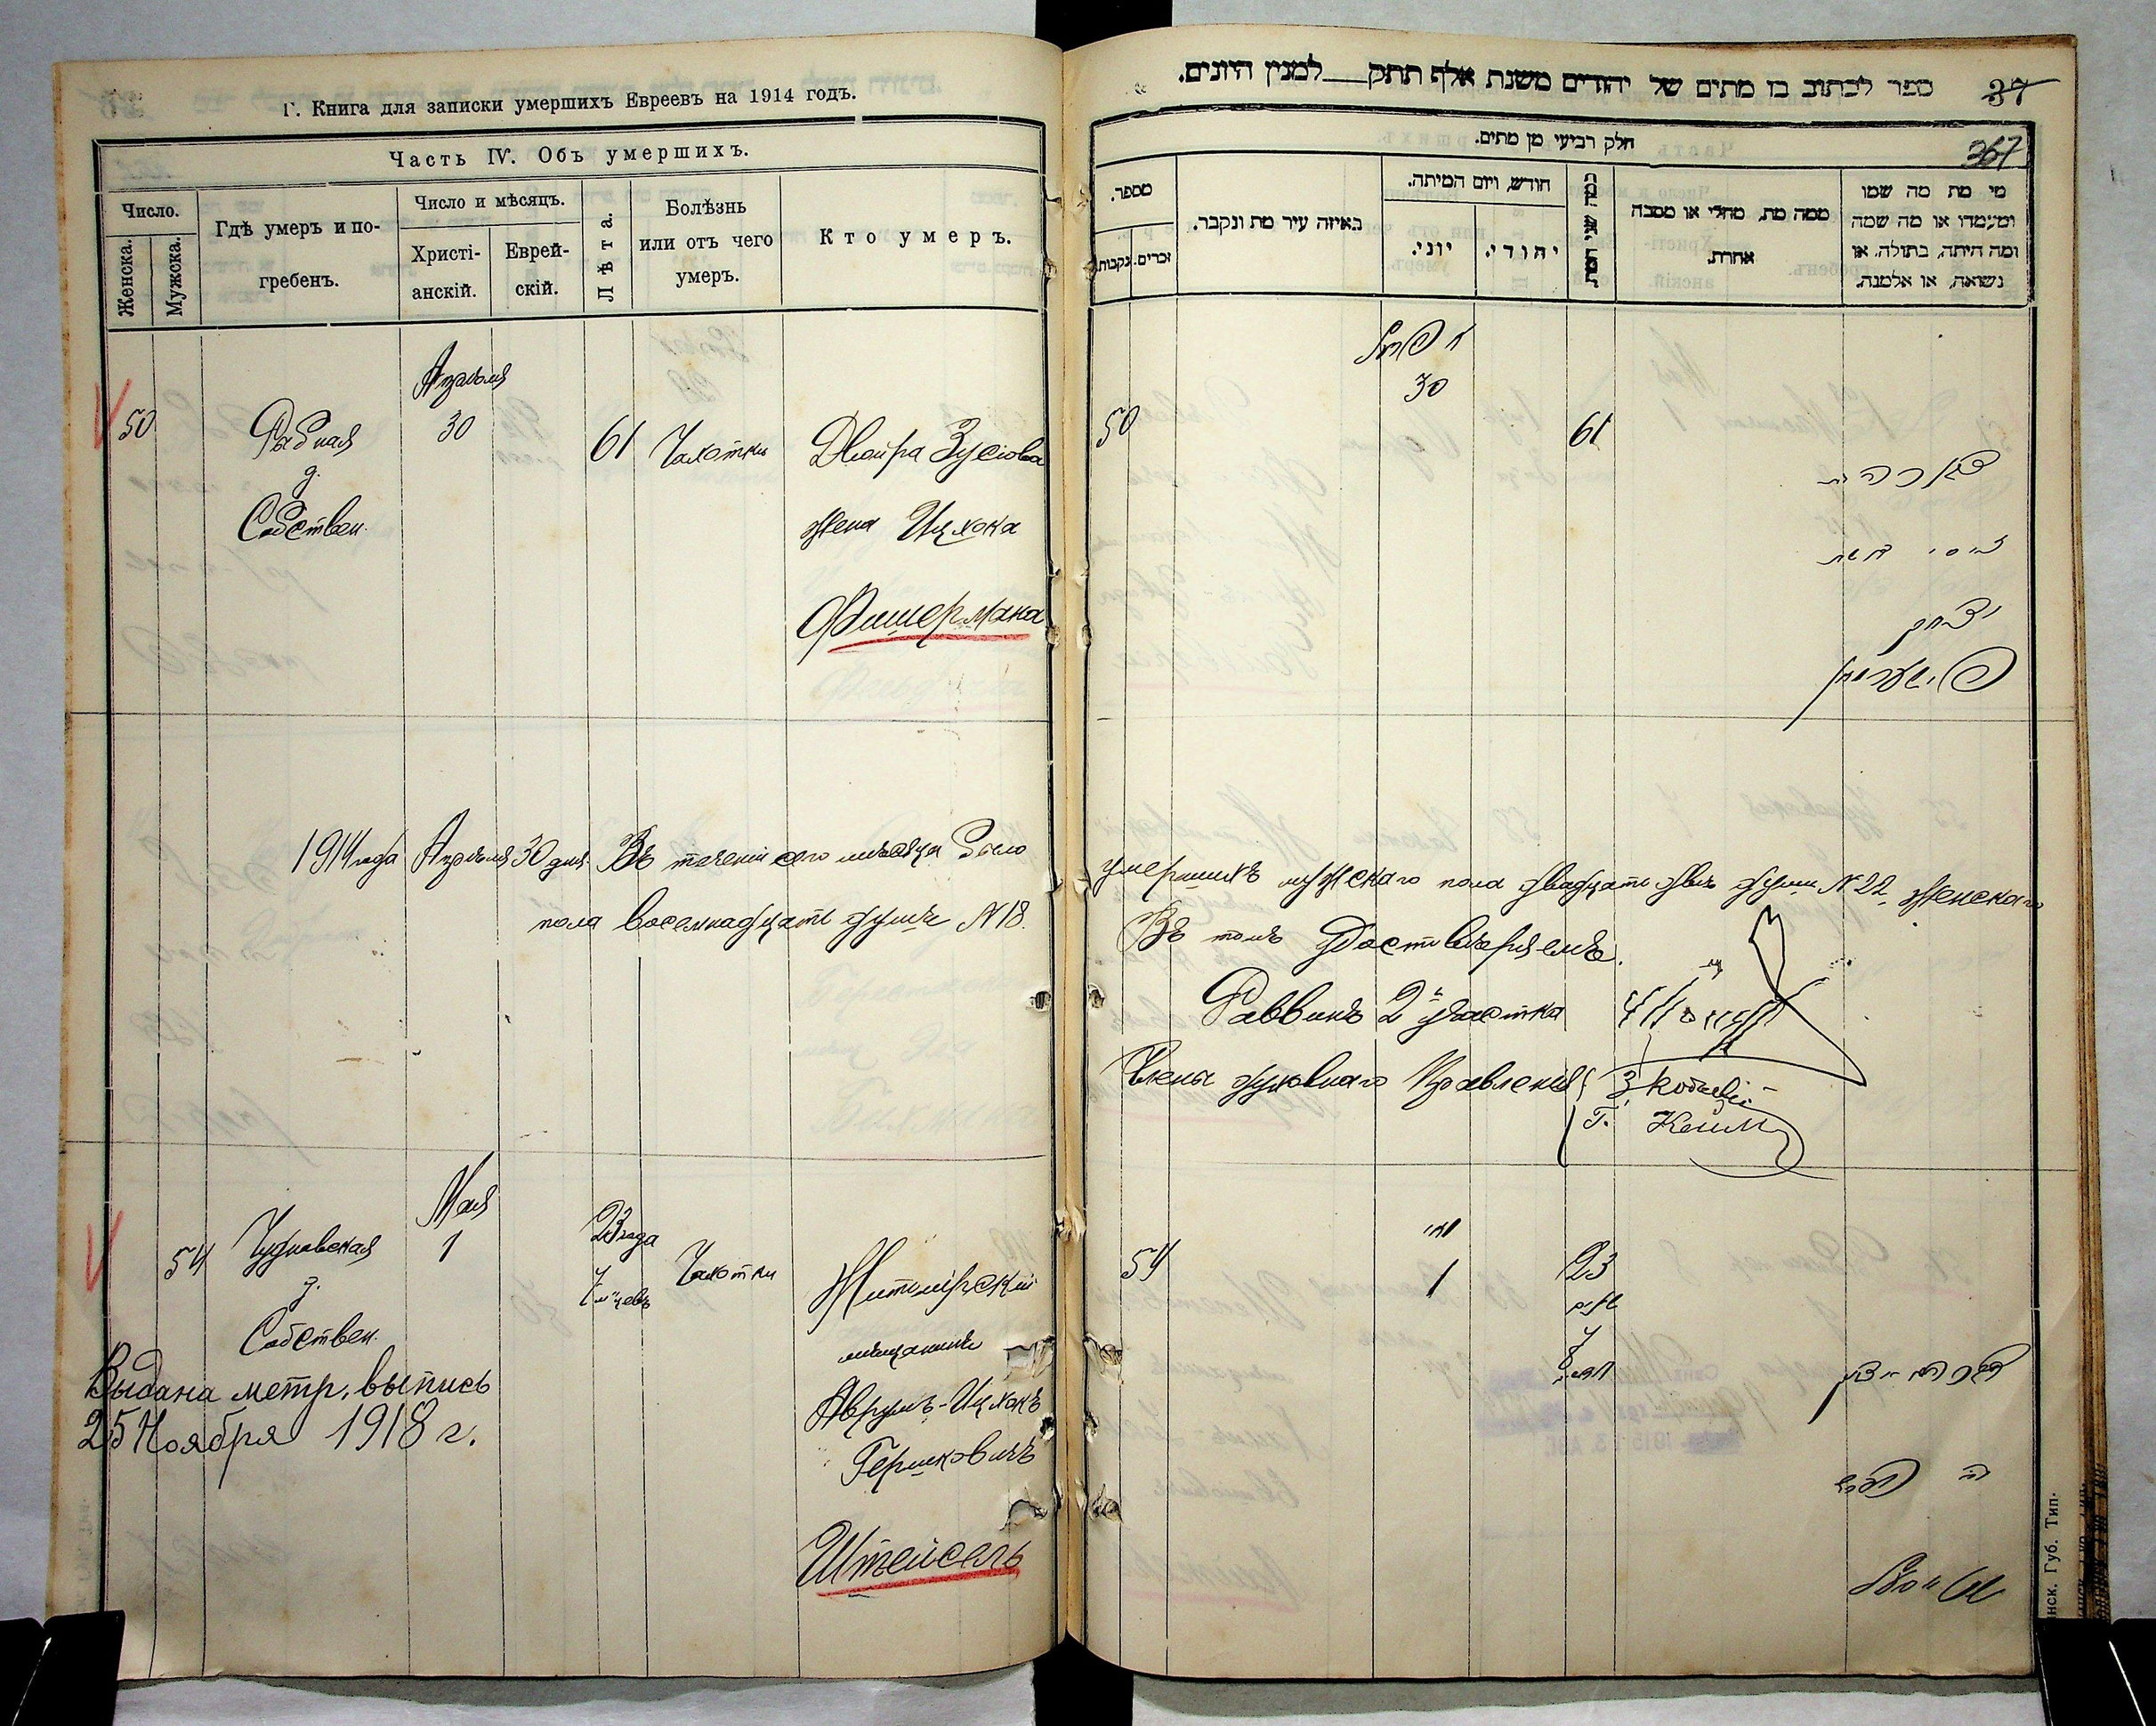 Г. Книга для записки умершихъ Евреевъ на 1914 годъ.
Часть IV. Объ умершихъ.
Число.
Женска.
Мужска.
Гдѣ умеръ и по-
гребенъ.
Число и мѣсяцъ.
Христі-
анскій.
Еврей-
скій.
Лѣта.
Болѣзнь
или отъ чего
умеръ.
Кто умеръ.
Апрѣля
50
Рыбная
30
61
Чахотки
Двойра Зусіова
д.
Собствен.
жена Ицхока
Фишермана
1914 года Апрѣля 30 дня. Въ теченіи сего мѣсяца было
пола восемнадцать душъ N 18.
Мая
54
Чудновская
1
23 года
7 м-цевъ
Чахотки
Житомірскій
д.
Собствен.
мѣщанинъ
Аврумъ-Ицхокъ
Гершковичъ
Штейсель
Выдана метр. выпись
25 Ноября 1918 г.
ספר לכתוב בו מתים של יהודים משנת אלף תתק למנין היונים.
37
367
חלק רביעי מן מתים.
מספר.
נקבות
זכרים.
באיזה עיר מת ונקבר.
חודש, ויום המיתה.
יוני.
יהודי.
כמה שני המת
ממה מת, מחלי או מסבה
אחרת.
מי מת מה שמו
ומעמדו או מה שמה
ומה היתה, בתולה, או
נשואה, או אלמנה.
30
50
61
יצחק
פישערמאן
умершихъ мужскаго пола двадцать двѣ души N 22, женскаго
Въ томъ удостовѣряемъ.
Раввинъ 2го участка
Члены духовнаго Правленія
З.
Г.
מאי
54
1
23
7
אברהם יצחק
нск. Губ. Тип.